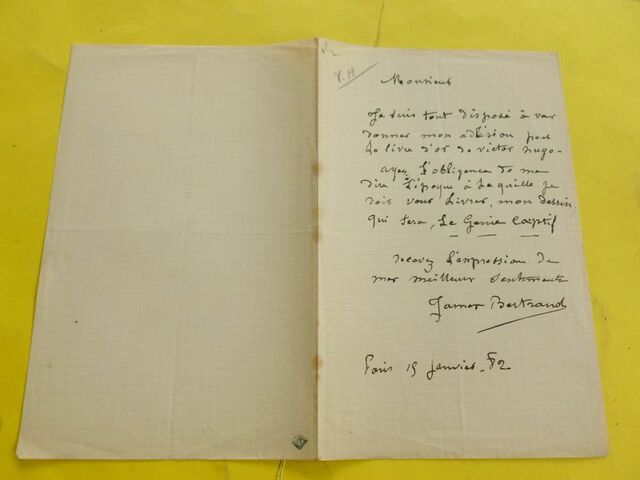 V. H
Monsieur
Je suis tout disposé à vous
donner mon adhésion pour
Le livre d'or de victor hugo -
ayez L'obligeance de me
dire L'époque à Laquelle je
dois vous Livrer, mon dessin,
qui sera, Le Genie Captif
recevez L'expression de
mes meilleurs sentiments
James Bertrand
Paris 15 janvier - 82